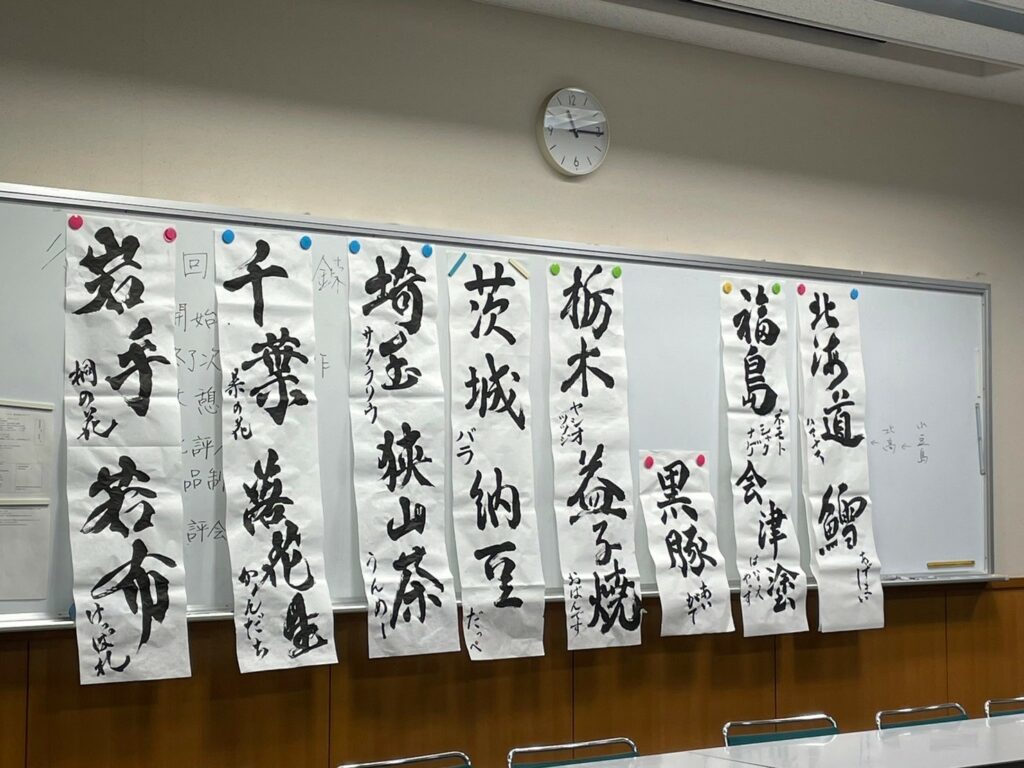 北海道
ハマナス
鱈
福島
ネモト
シャク
ナゲ
会津塗
黒豚
栃木
ヤシオ
ツツジ
益子焼
おばんです
茨城
バラ
納豆
だっぺ
埼玉
サクラソウ
狭山茶
うんめー
千葉
菜の花
落花生
かんだち
岩手
桐の花
若布
けっぱれ
小豆島
北高
回
開始
次
憩
評
品制
評会
12
3
6
9